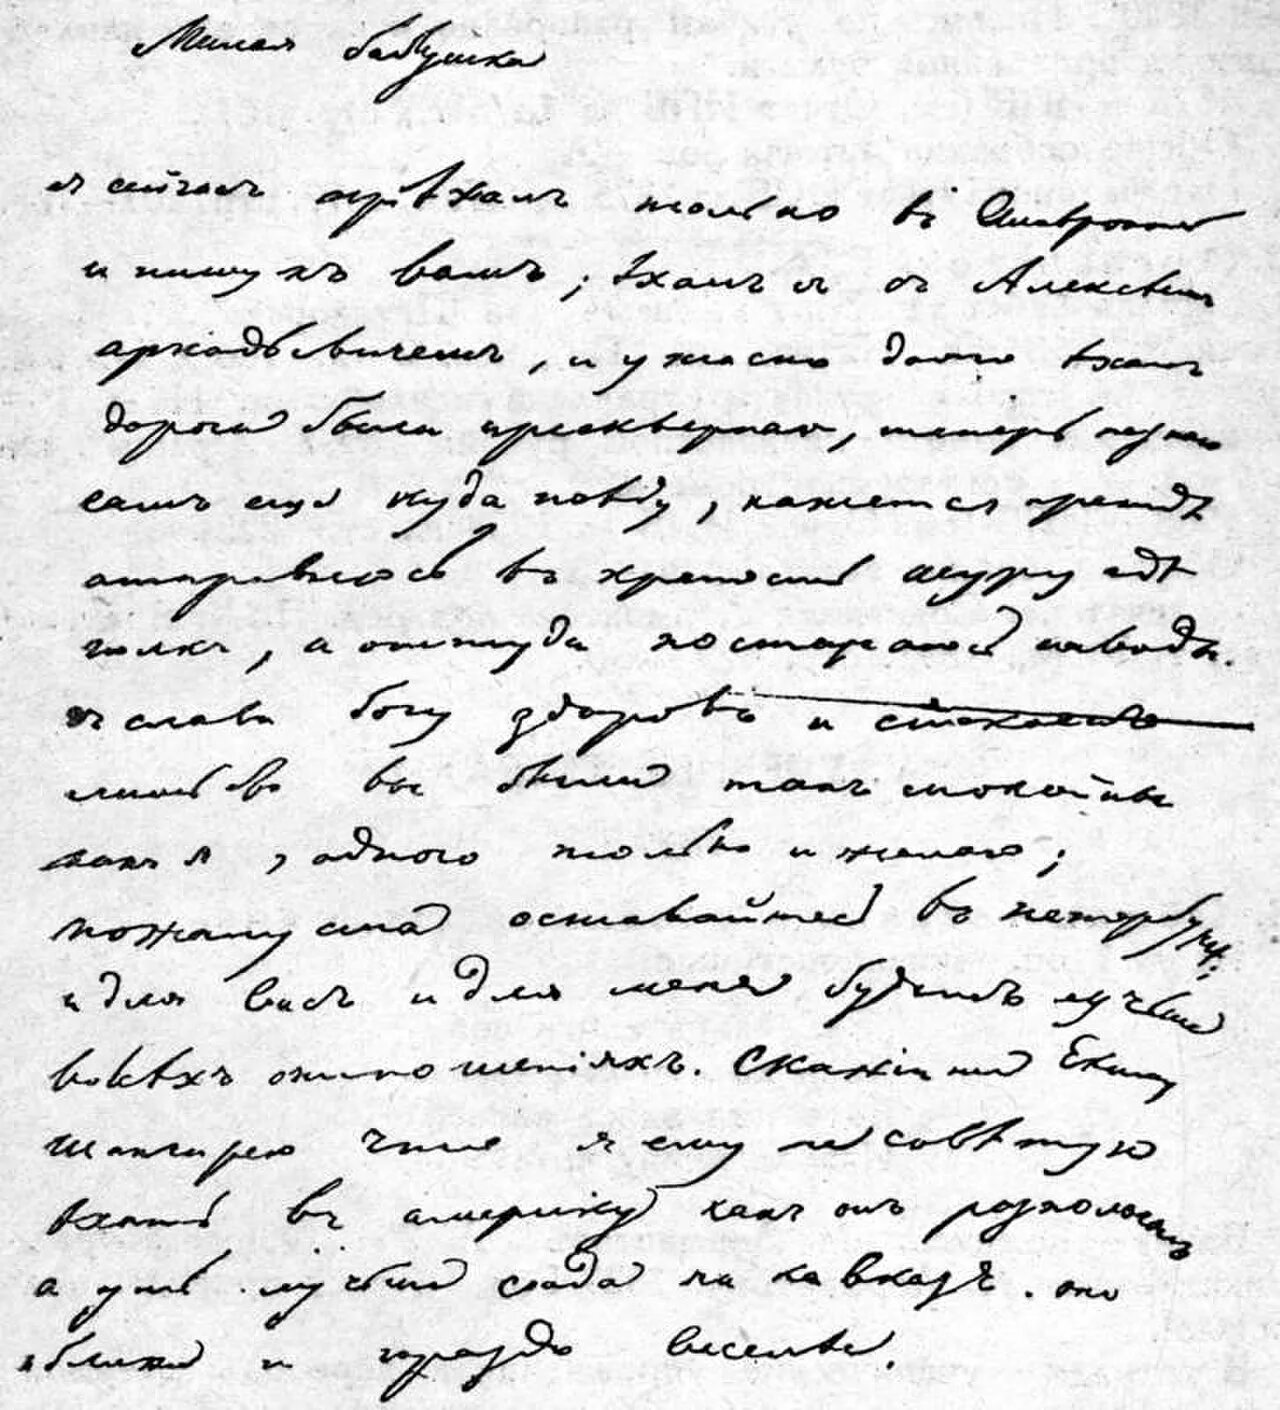 Милая бабушка
я сейчасъ пріѣхалъ только въ Ставрополь
и пишу къ вамъ; ѣхалъ я съ Алексѣемъ
аркадьевичемъ, и ужасно долго ѣхалъ
дорога была прескверная, теперь не знаю
самъ еще куда поѣду, кажется прежде
отправлюсь въ крѣпость шуру гдѣ
полкъ, а оттуда постараюсь на воды.
я слава богу здоровъ и спокоенъ
лишь бы вы были такъ спокойны
какъ я, одного только и желаю;
пожалуста оставайтесь въ петербургѣ:
и для васъ и для меня будетъ лучше
во всѣхъ отношеніяхъ. Скажите Екиму
шангирею что я ему не совѣтую
ѣхать въ америку какъ онъ располагалъ
а ужъ лучше сюда на кавказъ. оно
и ближе и гораздо веселѣе.